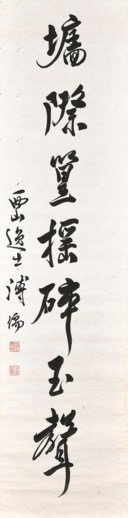 墉際篁摇碎玉聲
西山逸士溥儒